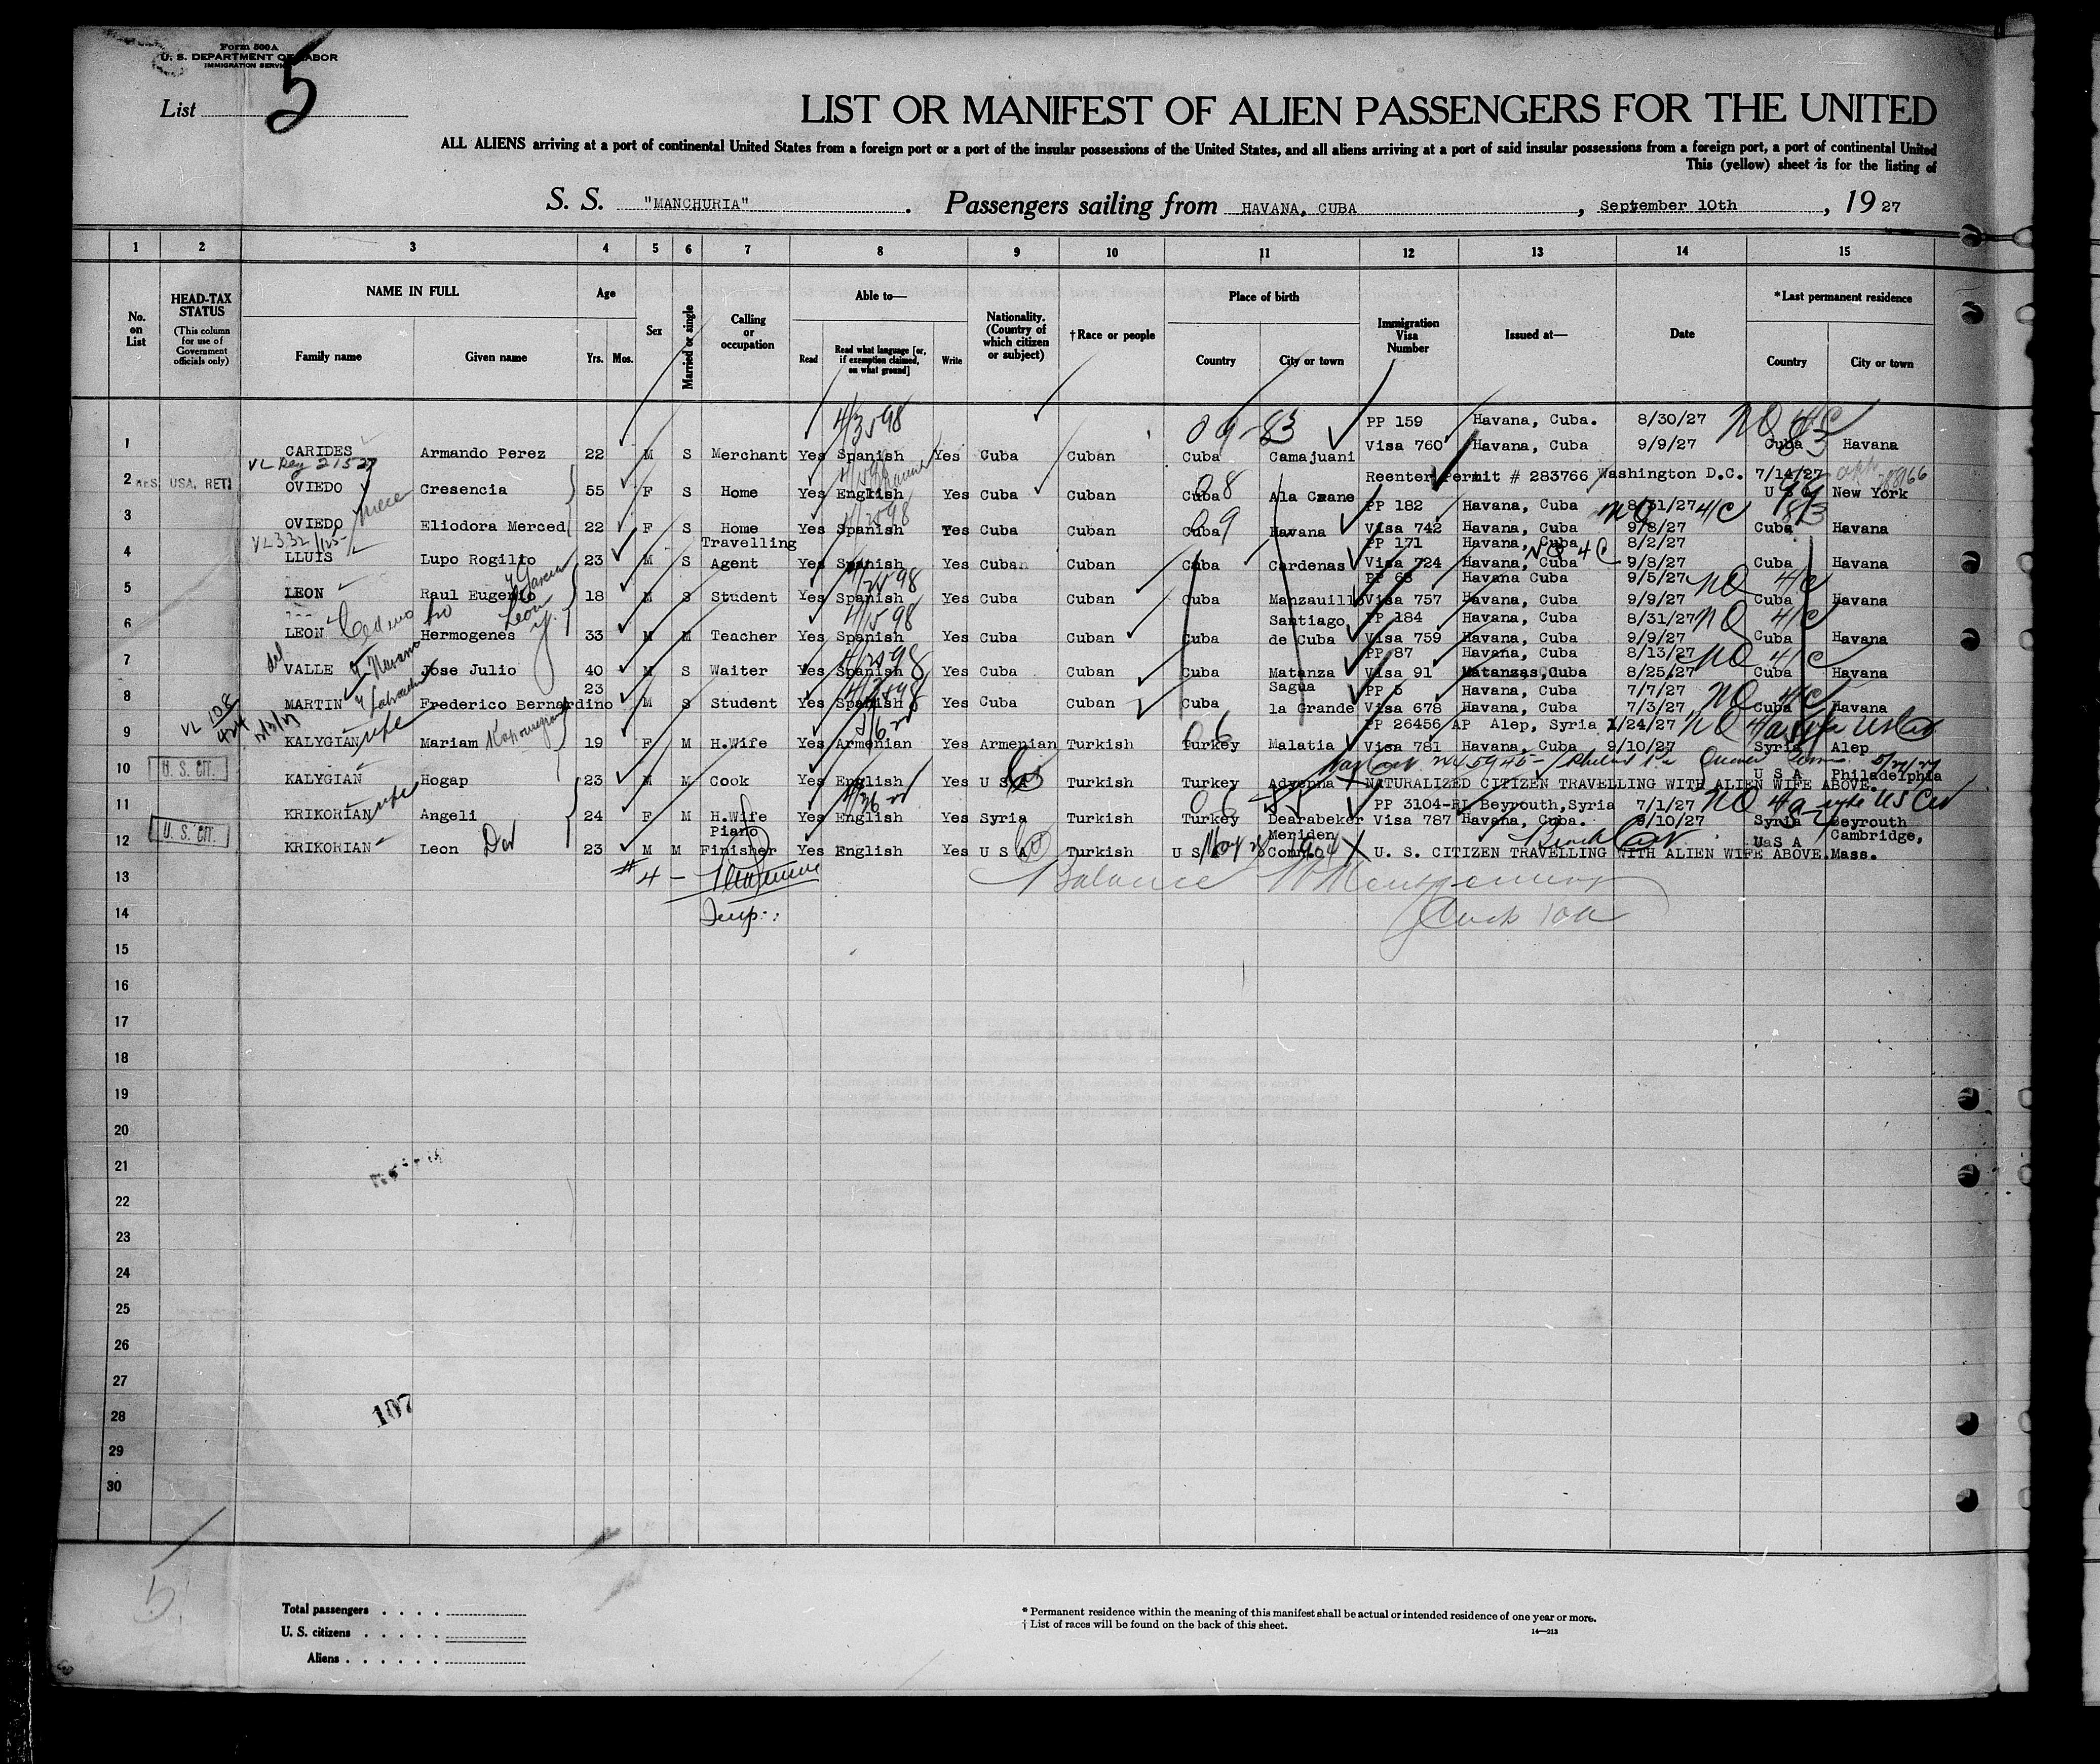 Form 500 A
U. S. DEPARTMENT OF LABOR
IMMIGRATION SERVICE
List 5
LIST OR MANIFEST OF ALIEN PASSENGERS FOR THE UNITED
ALL ALIENS arriving at a port of continental United States from a foreign port or a port of the insular possessions of the United States, and all aliens arriving at a port of said insular possessions from a foreign port, a port of continental United
This (yellow) sheet is for the listing of
S. S. "MANCHURIA". Passengers sailing from HAVANA, CUBA, September 10th, 19 27
1 2 3 4 5 6 7 8 9 10 11 12 13 14 15
No. on List
HEAD-TAX STATUS
(This column for use of Government officials only)
NAME IN FULL
Family name Given name
Age
Yrs. Mos.
Sex
Married or single
Calling or occupation
Able to—
Read Read what language [or, if exemption claimed, on what ground] Write
Nationality. (Country of which citizen or subject)
†Race or people
Place of birth
Country City or town
Immigration Visa Number
Issued at—
Date
*Last permanent residence
Country City or town
4/3598 09-83 PP 159 Havana, Cuba. 8/30/27 NQ 4/C
1 CARIDES Armando Perez 22 M S Merchant Yes Spanish Yes Cuba Cuban Cuba Camajuani Visa 760 Havana, Cuba 9/9/27 Cuba Havana
Reentry Permit # 283766 Washington D.C. 7/14/27
2 RES. USA, RET. OVIEDO Cresencia 55 F S Home Yes English Yes Cuba Cuban Cuba 08 Ala Czane U S A New York
niece PP 182 Havana, Cuba 8/31/27 NQ 4/C
3 OVIEDO Eliodora Merced 22 F S Home Yes Spanish Yes Cuba Cuban Cuba 09 Havana Visa 742 Havana, Cuba 9/8/27 Cuba Havana
Travelling PP 171 Havana, Cuba 8/2/27 NQ 4C
4 LLUIS Lupo Rogilio 23 M S Agent Yes Spanish Yes Cuban Cuban Cuba Cardenas Visa 724 Havana, Cuba 9/8/27 Cuba Havana
y Garcia PP 68 Havana Cuba 9/5/27 NQ 4/C
5 LEON Raul Eugenio 18 M S Student Yes Spanish Yes Cuba Cuban Cuba Manzauillo Visa 757 Havana, Cuba 9/9/27 Cuba Havana
Leon y Santiago PP 184 Havana, Cuba 8/31/27 NQ 4/C
6 LEON Hermogenes 33 M M Teacher Yes Spanish Yes Cuba Cuban Cuba de Cuba Visa 759 Havana, Cuba 9/9/27 Cuba Havana
del PP 87 Havana, Cuba 8/13/27 NQ 4/C
7 VALLE Jose Julio 40 M S Waiter Yes Spanish Yes Cuba Cuban Cuba Matanza Visa 91 Matanzas, Cuba 8/25/27 Cuba Havana
23 Sagua PP 5 Havana, Cuba 7/7/27 NQ 4/C
8 MARTIN Frederico Bernardino M S Student Yes Spanish Yes Cuba Cuban Cuba la Grande Visa 678 Havana, Cuba 7/3/27 Cuba Havana
06 PP 26456 AP Alep, Syria 1/24/27 NQ 4/a wife US Cit
9 KALYGIAN wife Mariam 19 F M H.Wife Yes Armenian Yes Armenian Turkish Turkey Malatia Visa 781 Havana, Cuba 9/10/27 Syria Alep
5/21/27
10 U. S. CIT. KALYGIAN Hogap 23 M M Cook Yes English Yes U S A Turkish Turkey Adyenna NATURALIZED CITIZEN TRAVELLING WITH ALIEN WIFE ABOVE. U S A Philadelphia
06 PP 3104-RL Beyrouth, Syria 7/1/27 NQ 4a wife US Cit
11 KRIKORIAN wife Angeli 24 F M H.Wife Yes English Yes Syria Turkish Turkey Dearabeker Visa 787 Havana, Cuba. 9/10/27 Syria Beyrouth
Piano Meriden Cambridge,
12 U. S. CIT. KRIKORIAN Leon Der 23 M M Finisher Yes English Yes U S A Turkish U S A Conn. 1904 U. S. CITIZEN TRAVELLING WITH ALIEN WIFE ABOVE. U S A Mass.
13 #4 - Balance Montgomery
14 Insp.:
15
16
17
18
19
20
21
22
23
24
25
26
27
28 107
29
30
5
Total passengers
U. S. citizens
Aliens
* Permanent residence within the meaning of this manifest shall be actual or intended residence of one year or more.
† List of races will be found on the back of this sheet.
14—213